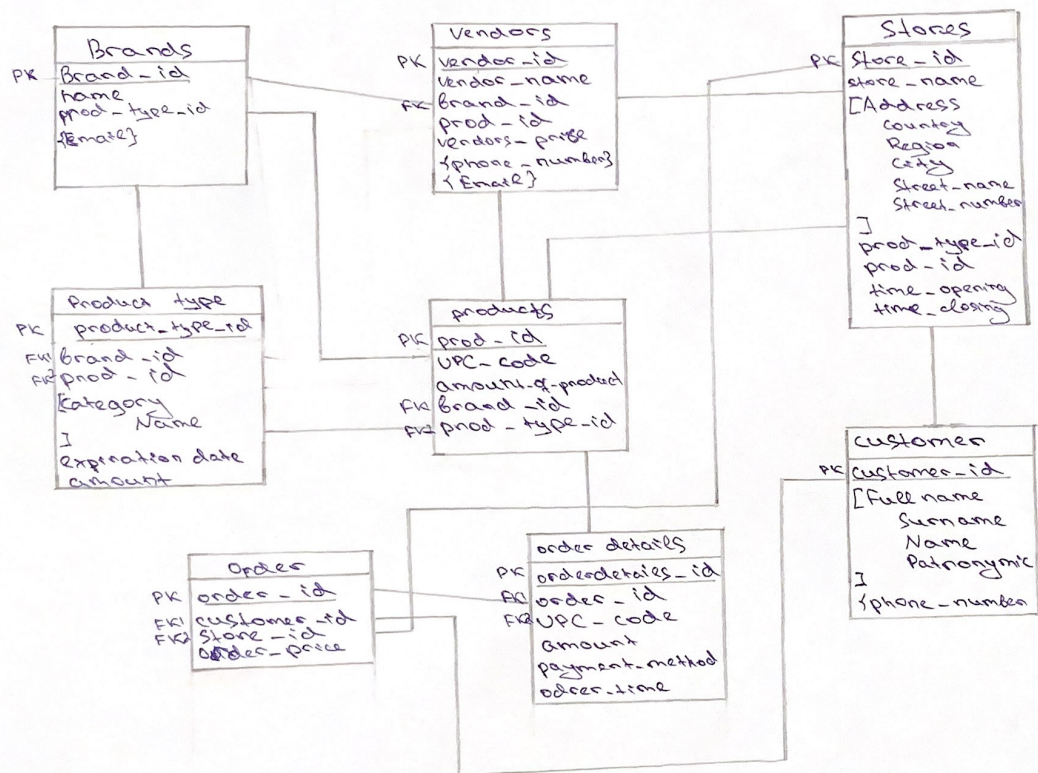 Brands
PK Brand_id
name
prod_type_id
{Email}
Vendors
PK vendor_id
vendor_name
FK brand_id
prod_id
vendors_prise
{phone_number}
{Email}
Stores
PK Store_id
store_name
[Address
Country
Region
City
Street_name
Street_number
]
prod_type_id
prod_id
time_opening
time_closing
Product type
PK product_type_id
FK1 brand_id
FK2 prod_id
[Category
Name
]
expiration date
amount
products
PK prod_id
UPC_code
amount_of_product
FK1 brand_id
FK2 prod_type_id
customer
PK customer_id
[Full name
Surname
Name
Patronymic
]
{phone_number
Order
PK order_id
FK1 customer_id
FK2 Store_id
order_price
order details
PK orderdetails_id
FK1 order_id
FK2 UPC_code
amount
payment_method
odrer_time